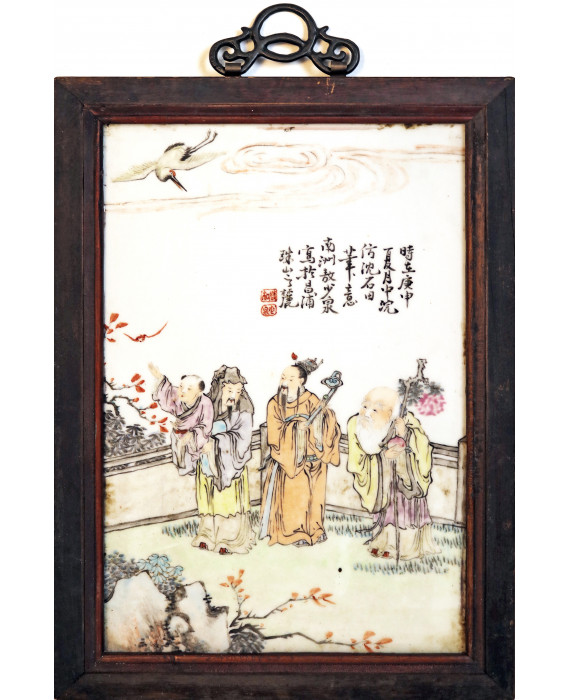 時在庚申
夏月中浣
仿沈石田
筆意
南洲敖少泉
寫於昌浦
珠山之麓